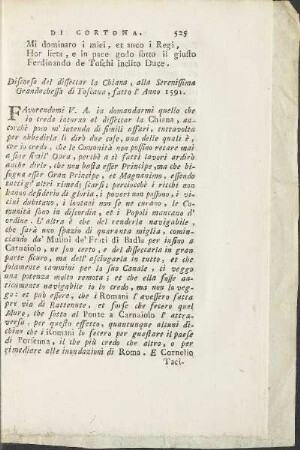 DI CORTONA. 525
Mi dominaro i miei, et meco i Regi,
Hor lieta, e in pace godo sotto il giusto
Ferdinando de Toschi inclito Duce.
Discorso del dissectar la Chiana, alla Serenissima
Grandochessa di Toscana, fatto l' Anno 1591.
FAvorendomi V. A. in domandarmi quello che
io creda intorno al dissectar la Chiana, an-
corchè poco m' intenda di simili affari, contuttavolta
per obbedirla li dirò due cose, una delle quali è,
che io credo, che le Comunità non possino recare mai
a fine simil' Opra, perchè a si fatti lavori ardirò
anche dirle, che non basta esser Principe, ma che bi-
sogna esser Gran Principe, et Magnanimo, essendo
tutti gl' altri rimedj scarsi; perciocchè i ricchi non
hanno desiderio di gloria; i poveri non possono, i vi-
cini dubitano, i lontani non se ne curano, le Co-
munità sono in discordia, et i Popoli mancano d' or-
dine. L' altra è che del renderla navigabile,
che sarà uno spazio di quaranta miglia, comin-
ciando da' Mulini de' Frati di Badia per infino a
Carnaiolo, ne son certo, e del dissectarla in gran
parte sicuro, ma dell' asciugarla in tutto, et che
solamente cammini per lo suo Canale, ci veggo
una potenza molto remota; et che ella fusse an-
ticamente navigabile io lo credo, ma non lo veg-
go: et può essere, che i Romani l' avessero fatta
per via di Ratterrate, et forse che fecero quel
Muro, che sotto al Ponte a Carnaiolo l' attra-
versa, per questo effetto, quantunque alcuni di-
chino che i Romani lo fecero per guastare il paese
di Porsenna, il che più credo che altro, o per
rimediare alle inondazioni di Roma. E Cornelio
Taci-